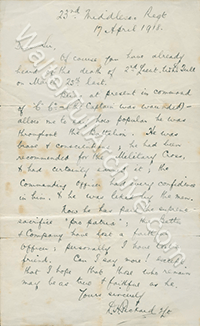 23rd Middlesex Regt
17 April 1918.
Dear Sir,
Of course you have already
heard of the death of 2nd Lieut.
on March 23rd last.
at present in command
of "C" Coy (Captain was wounded) -
allow me to how popular he was
throughout the Battalion. He was
brave & conscientious; he had been
recommended for the Military Cross,
& had certainly earned it; the
Commanding Officer had every confidence
in him, & he was loved by the men.
Now he has paid the supreme
sacrifice "pro patria". My Battn
& Company have lost a
officer; personally I have lost a
friend. Can I say more? except
that I hope that those who remain
may be as true & faithful as he.
Yours sincerely